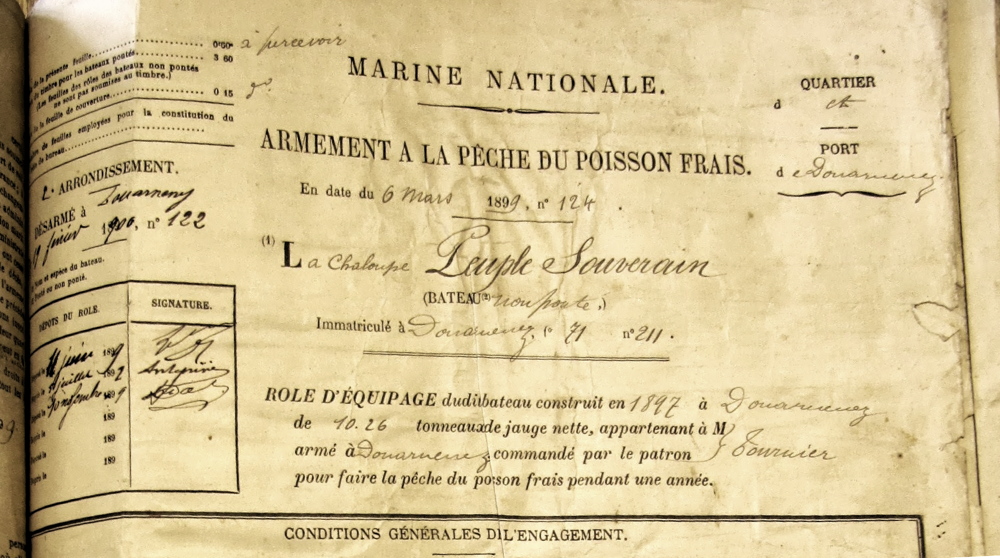 de la présente feuille 0'60 à percevoir
du timbre pour les bateaux pontés 3 60
(Les feuilles des rôles des bateaux non pontés
ne sont pas soumises au timbre.)
de la feuille de couverture 0 15
de feuilles employées pour la constitution du
du bureau
2e ARRONDISSEMENT.
DÉSARMÉ à Douarnenez
19 février 1900, n° 122
Nom et espèce du bateau.
Ponté ou non ponté.
DÉPÔTS DU ROLE.
SIGNATURE.
juin 189
juillet 189
189
189
189
189
MARINE NATIONALE.
QUARTIER
d et
PORT
de Douarnenez
ARMEMENT A LA PÊCHE DU POISSON FRAIS.
En date du 6 Mars 1899, n° 124.
(1) La Chaloupe Peuple Souverain
(BATEAU(2) non ponté.)
Immatriculé à Douarnenez, f° 71 n° 211.
ROLE D'ÉQUIPAGE dudit bateau construit en 1897 à Douarnenez
de 10.26 tonneaux de jauge nette, appartenant à M
armé à Douarnenez commandé par le patron Fournier
pour faire la pêche du poisson frais pendant une année.
CONDITIONS GÉNÉRALES DE L'ENGAGEMENT.